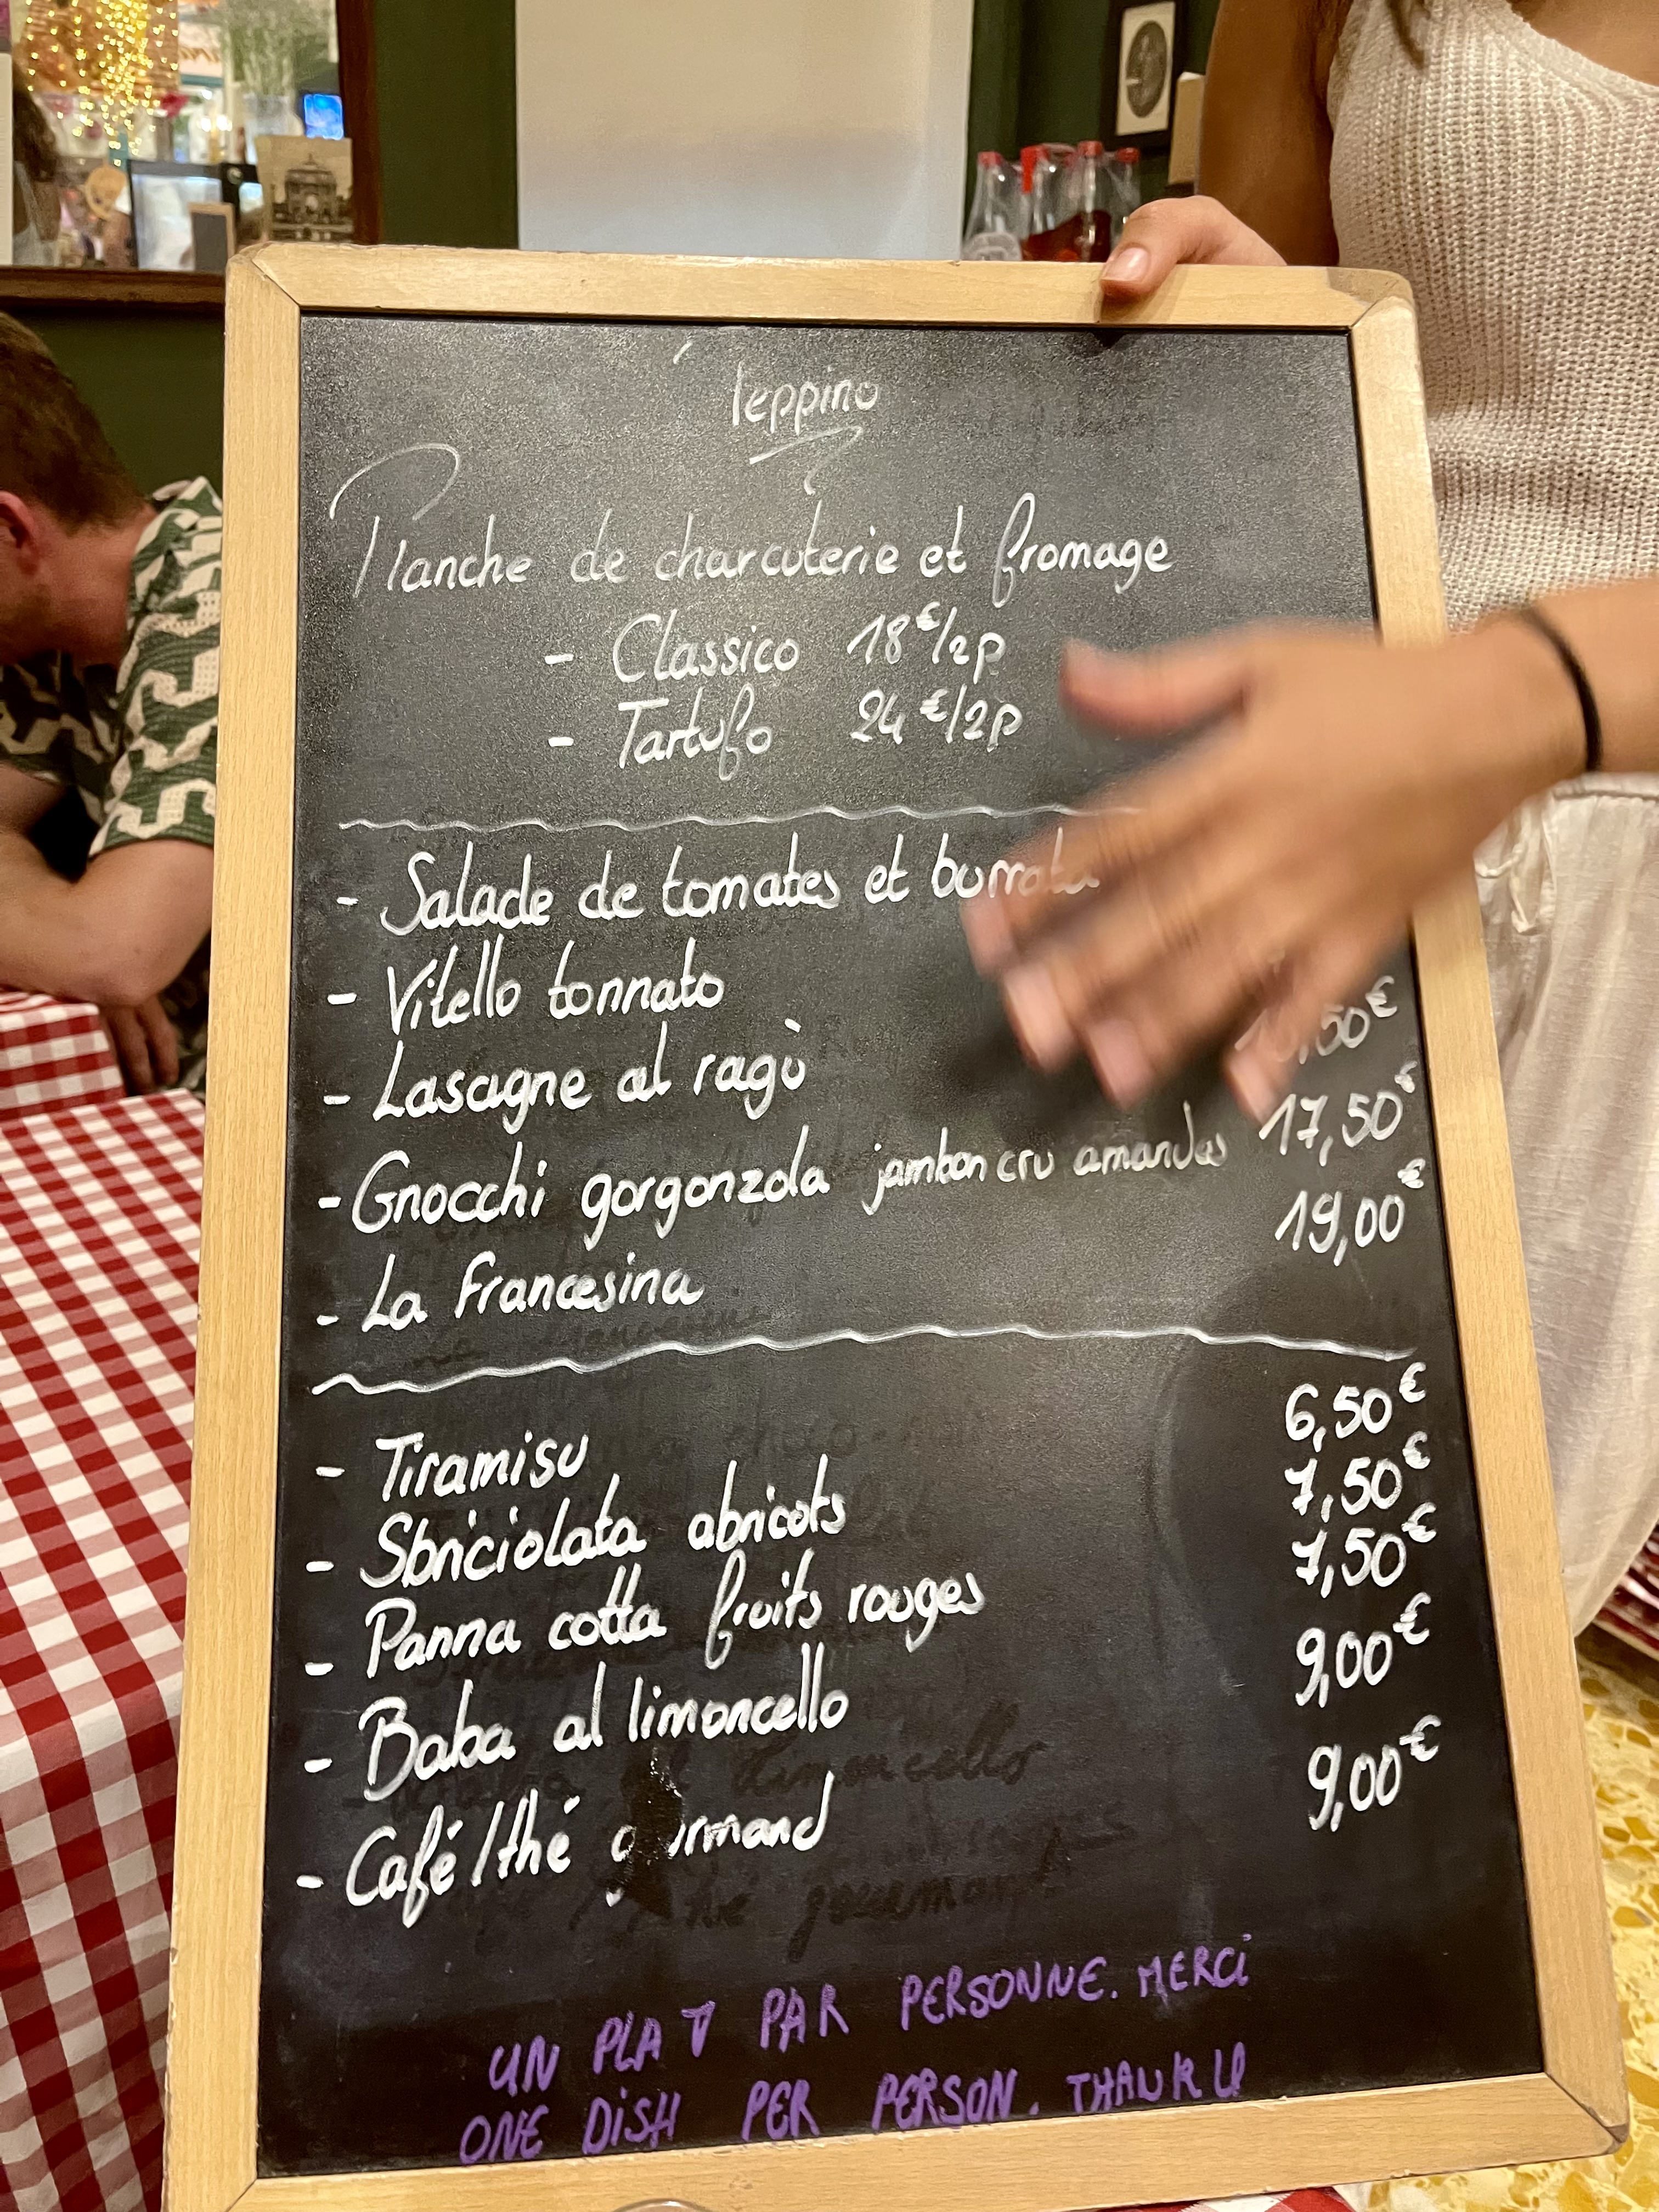 Peppino
Planche de charcuterie et fromage
- Classico 18€/2p
- Tartufo 24€/2p
- Salade de tomates et burrata
- Vitello tonnato
- Lasagne al ragù ,50€
- Gnocchi gorgonzola jambon cru amandes 17,50€
- La Francesina 19,00€
- Tiramisu 6,50€
- Sbriciolata abricots 7,50€
- Panna cotta fruits rouges 7,50€
- Baba al limoncello 9,00€
- Café/thé gourmand 9,00€
UN PLAT PAR PERSONNE. MERCi
ONE DiSH PER PERSON. THANK U